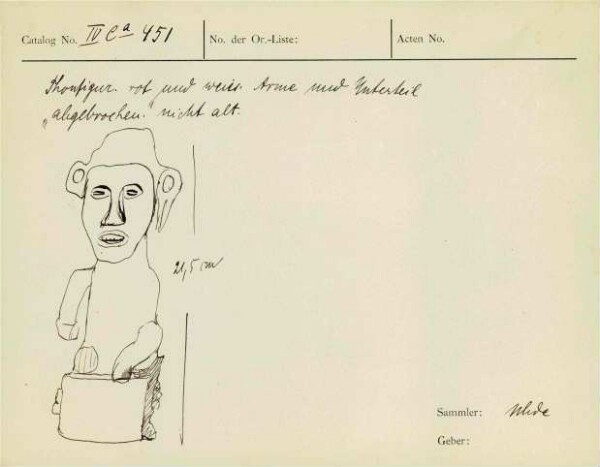 Catalog No. IV Ca 451
No. der Or.-Liste:
Acten No.
Thonfigur. rot und weiss. Arme und Unterteil
„abgebrochen.“ nicht alt.
21,5 cm
Sammler: Uhde
Geber: